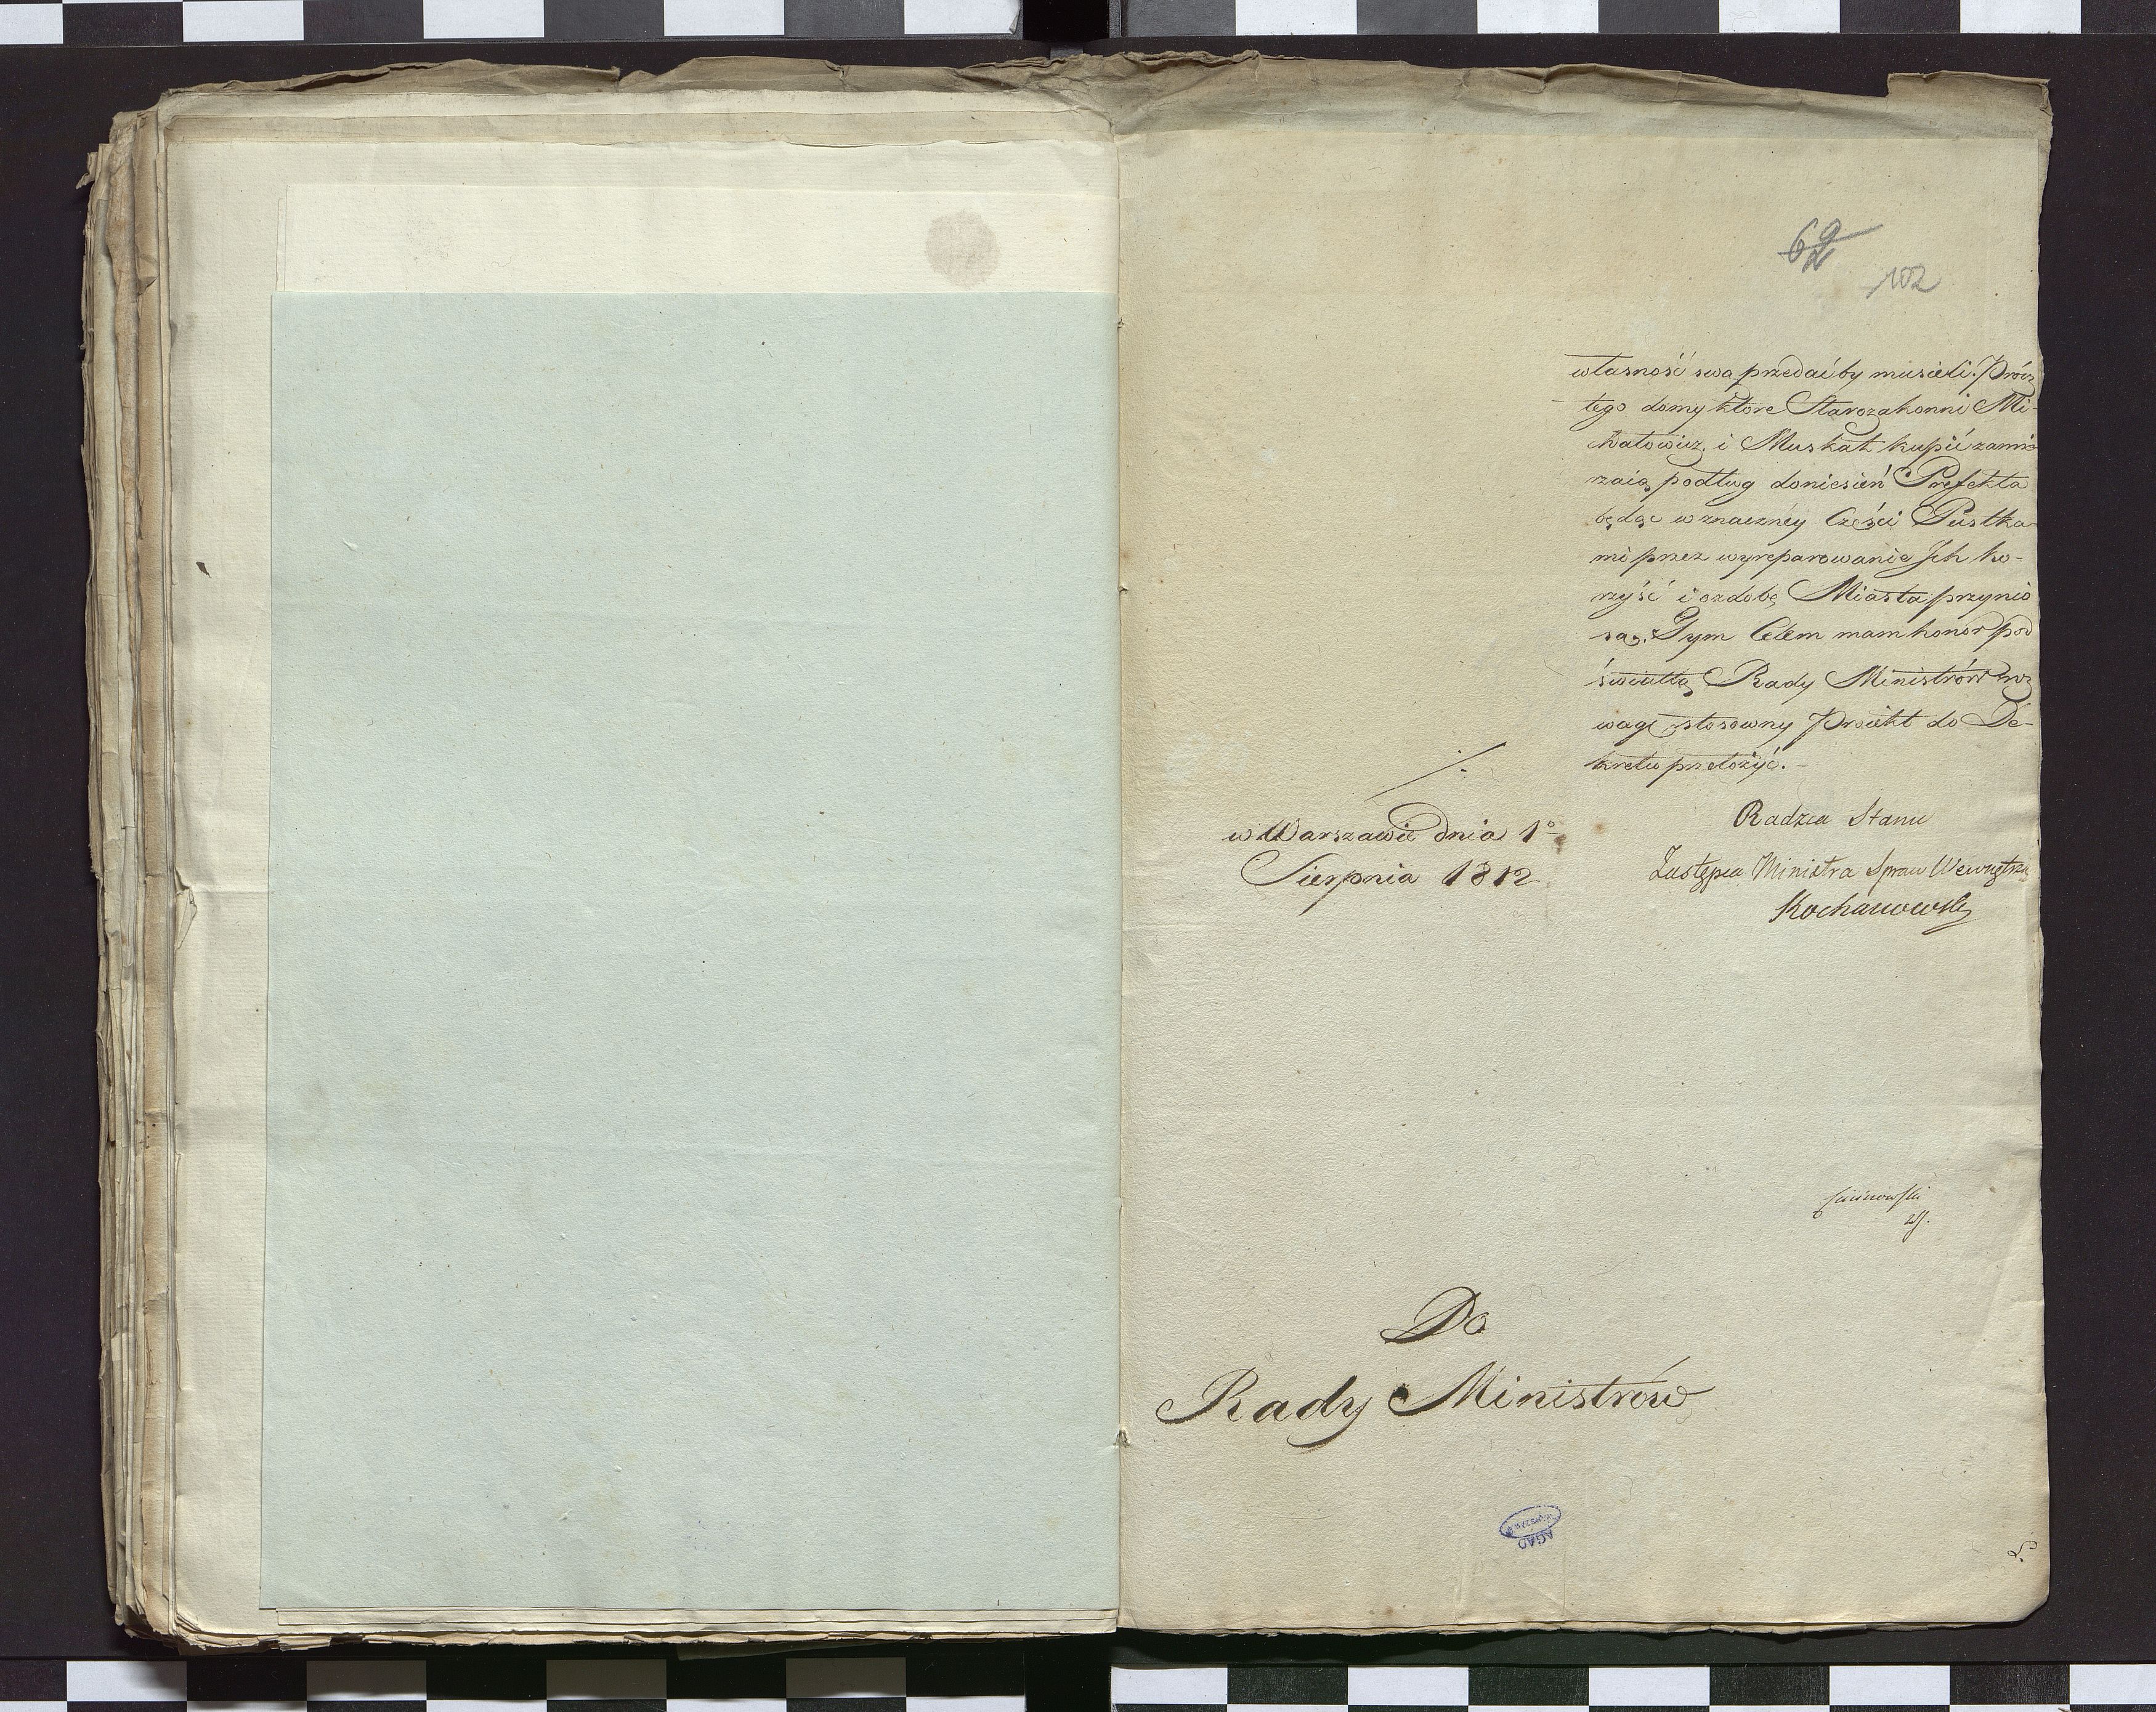 69
102
własność swą przedaćby musieli. Prócz
tego domy które Starozakonni Mi-
chałowicz, i Muskat kupić zamie
rzaią podług doniesień Prefekta
będąc w znacznéy Części Pustka-
mi przez wyreparowanie Jch ko-
rzyść i ozdobę Miasta przynio
są. Tym Celem mam honor pod
światłą Rady Ministrów roz
wagę stosowny Proiekt do De-
kretu przełożyć. -
w Warszawie dnia 1º
Sierpnia 1812
Radzca Stanu
Zastępca Ministra Spraw Wewnętrz
Kochanowski
Do
Rady Ministrów
AGAD
WARSZAWA